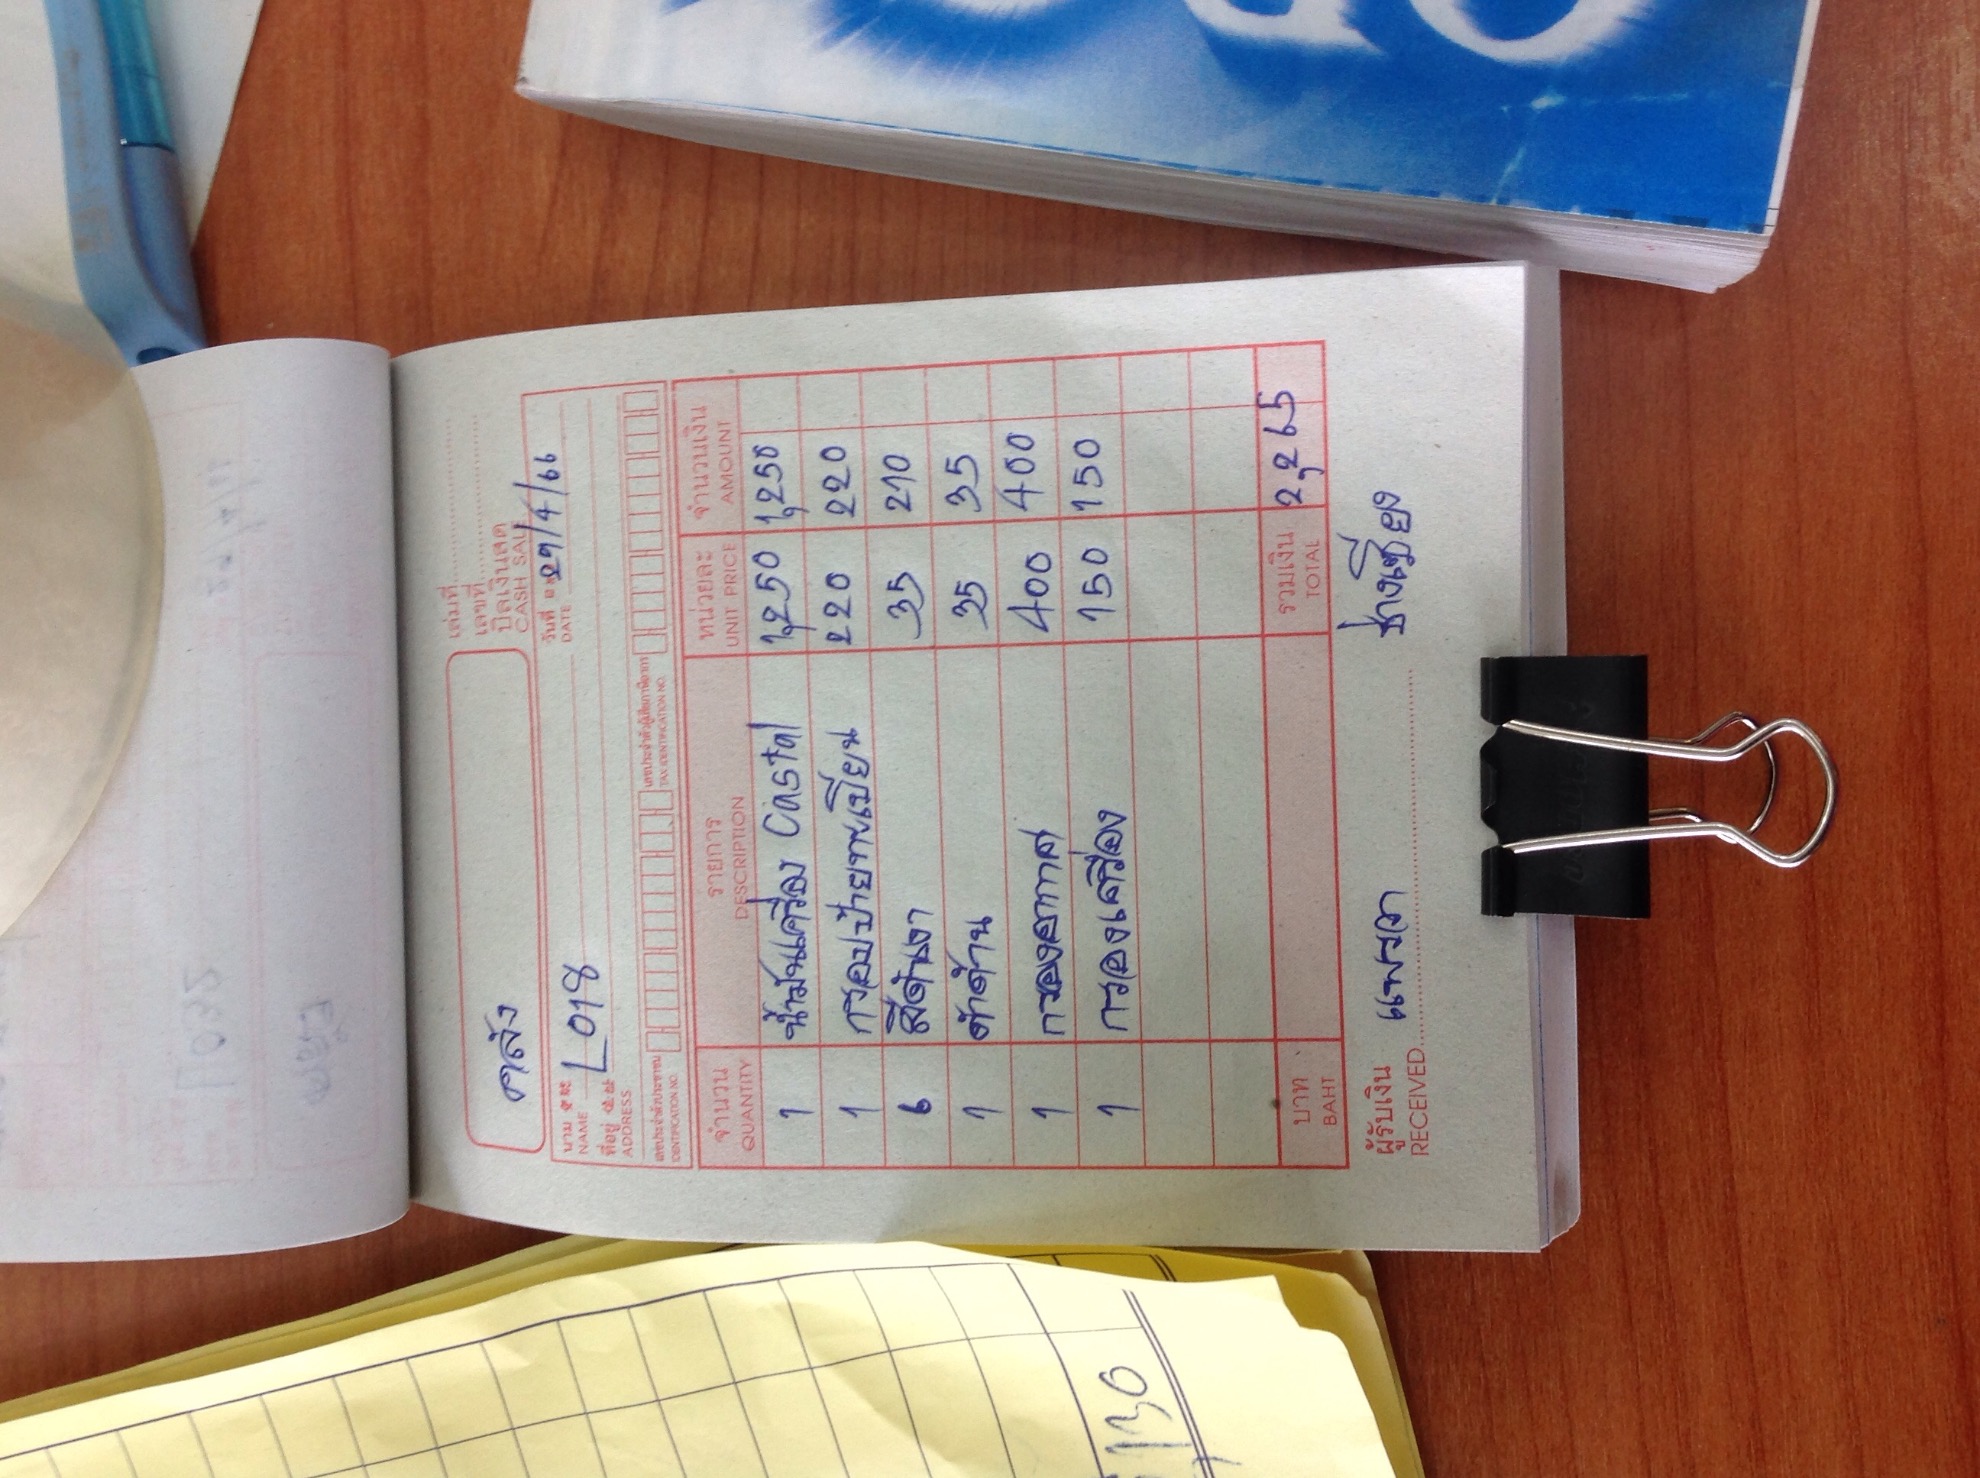 คลัง
เล่มที่
เลขที่
บิลเงินสด
CASH SALE
นาม
NAME
L018
วันที่ 29/4/66
DATE
ที่อยู่
ADDRESS
เลขประจำตัวประชาชน
IDENTIFICATION NO.
เลขประจำตัวผู้เสียภาษีอากร
TAX IDENTIFICATION NO.
จำนวน รายการ หน่วยละ จำนวนเงิน
QUANTITY DESCRIPTION UNIT PRICE AMOUNT
1 น้ำมันเครื่อง Castal 1,250 1,250
1 กรอบป้ายทะเบียน 220 220
6 สีดำเงา 35 210
1 ดำด้าน 35 35
1 กรองอากาศ 400 400
1 กรองเครื่อง 150 150
บาท รวมเงิน 2,265
BAHT TOTAL
ผู้รับเงิน
RECEIVED
แพรวา
130